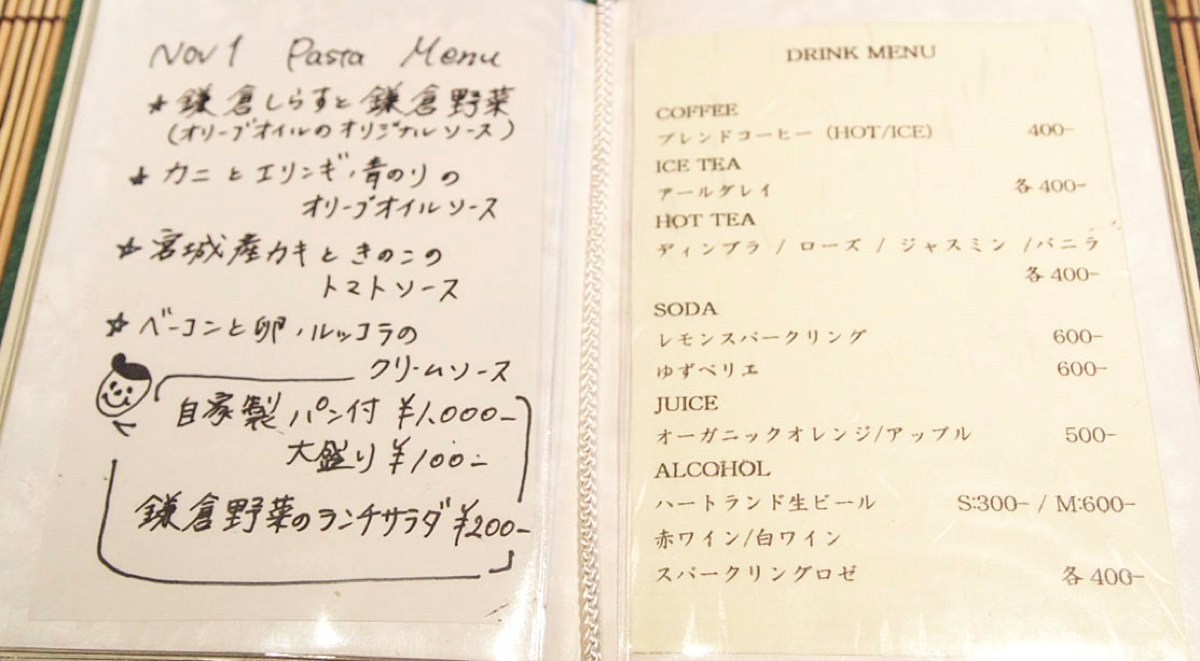 Nov 1 Pasta Menu
★ 鎌倉しらすと鎌倉野菜
(オリーブオイルのオリジナルソース)
★ カニとエリンギ・青のりの
オリーブオイルソース
☆ 宮城産カキときのこの
トマトソース
☆ ベーコンと卵・ルッコラの
クリームソース
自家製パン付 ¥1.000-
大盛り ¥100-
鎌倉野菜のランチサラダ ¥200-
DRINK MENU
COFFEE
ブレンドコーヒー (HOT/ICE) 400-
ICE TEA
アールグレイ 各400-
HOT TEA
ディンブラ / ローズ / ジャスミン /バニラ
各400-
SODA
レモンスパークリング 600-
ゆずペリエ 600-
JUICE
オーガニックオレンジ/アップル 500-
ALCOHOL
ハートランド生ビール S:300- / M:600-
赤ワイン/白ワイン
スパークリングロゼ 各400-